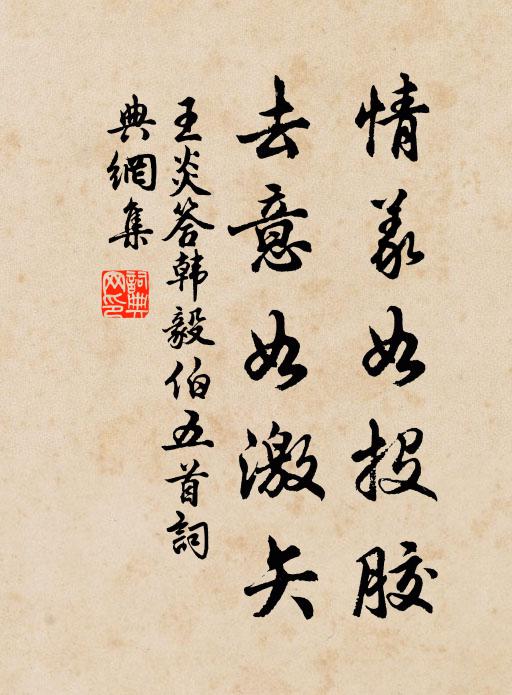 情義如投膠
去意如激矢
王炎答韩毅伯五首詞
典網集
詞典
网印